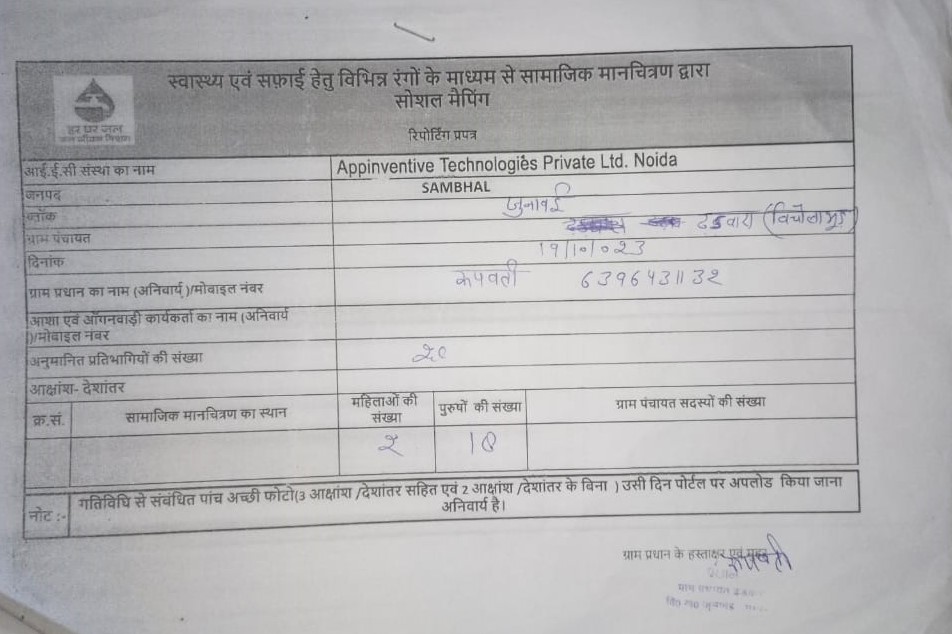 स्वास्थ्य एवं सफ़ाई हेतु विभिन्न रंगों के माध्यम से सामाजिक मानचित्रण द्वारा
सोशल मैपिंग
हर घर जल
जल जीवन मिशन
रिपोर्टिंग प्रपत्र
आई.ई.सी संस्था का नाम Appinventive Technologies Private Ltd. Noida
जनपद SAMBHAL
ब्लॉक जुनावई
ग्राम पंचायत ढडवारा (विचौलाभुड)
दिनांक 19/10/023
ग्राम प्रधान का नाम (अनिवार्य )/मोबाइल नंबर रुपवती 6396431132
आशा एवं आँगनवाड़ी कार्यकर्ता का नाम (अनिवार्य
)/मोबाइल नंबर
अनुमानित प्रतिभागियों की संख्या २०
आक्षांश- देशांतर
क्र.सं. सामाजिक मानचित्रण का स्थान महिलाओं की संख्या पुरुषों की संख्या ग्राम पंचायत सदस्यों की संख्या
२
नोट :- गतिविधि से संबंधित पांच अच्छी फोटो(3 आक्षांश /देशांतर सहित एवं 2 आक्षांश /देशांतर के बिना ) उसी दिन पोर्टल पर अपलोड किया जाना
अनिवार्य है।
ग्राम प्रधान के हस्ताक्षर एवं मुहर
रुपवती
ग्राम पंचायत